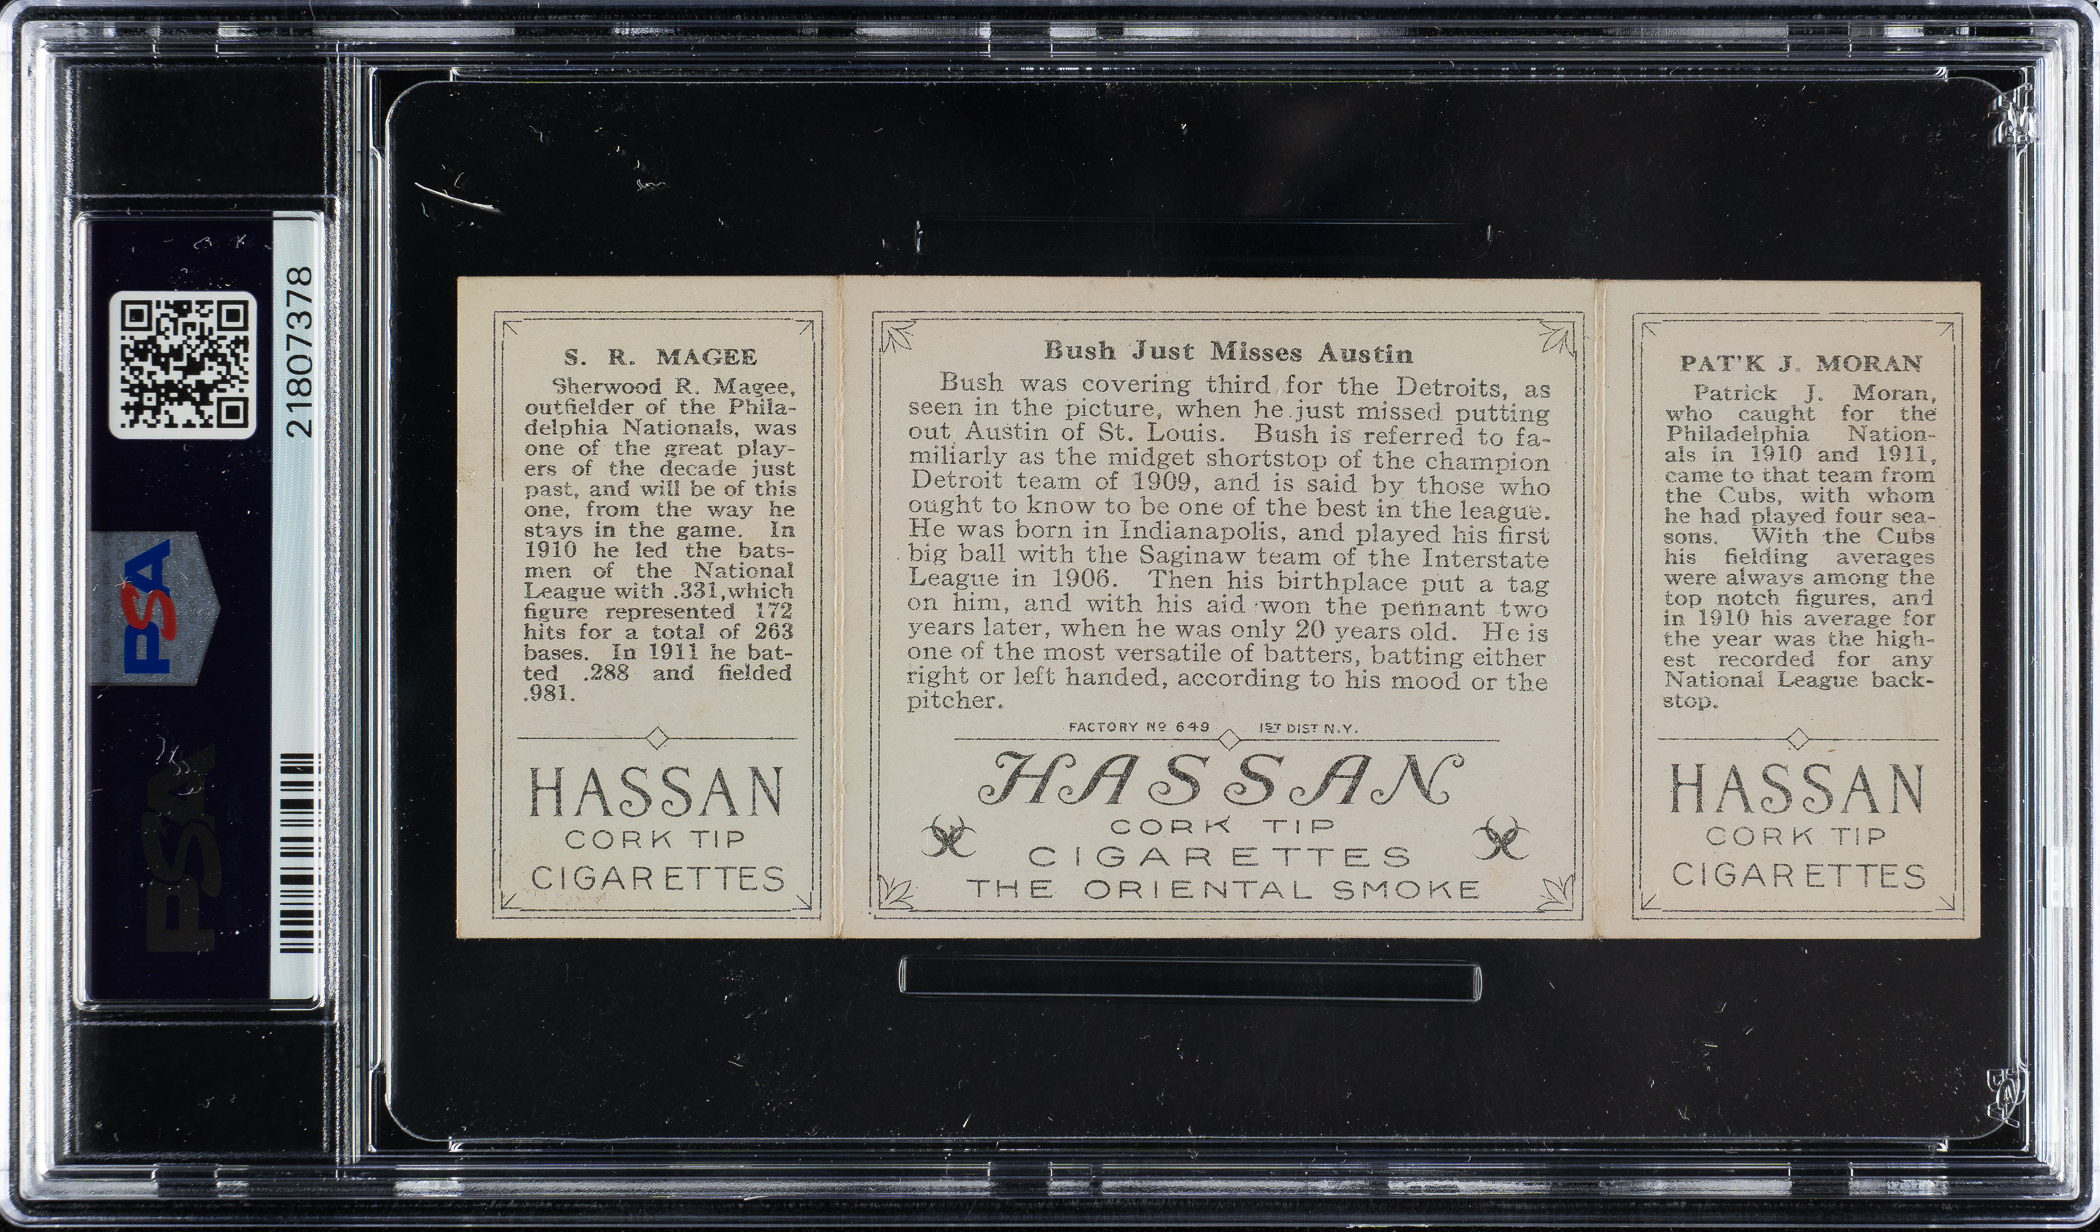 21807378
PSA
PSA
S. R. MAGEE
Sherwood R. Magee,
outfielder of the Phila-
delphia Nationals, was
one of the great play-
ers of the decade just
past, and will be of this
one, from the way he
stays in the game. In
1910 he led the bats-
men of the National
League with .331,which
figure represented 172
hits for a total of 263
bases. In 1911 he bat-
ted .288 and fielded
.981.
HASSAN
CORK TIP
CIGARETTES
Bush Just Misses Austin
Bush was covering third for the Detroits, as
seen in the picture, when he just missed putting
out Austin of St. Louis. Bush is referred to fa-
miliarly as the midget shortstop of the champion
Detroit team of 1909, and is said by those who
ought to know to be one of the best in the league.
He was born in Indianapolis, and played his first
big ball with the Saginaw team of the Interstate
League in 1906. Then his birthplace put a tag
on him, and with his aid won the pennant two
years later, when he was only 20 years old. He is
one of the most versatile of batters, batting either
right or left handed, according to his mood or the
pitcher.
FACTORY Nº 649 1ST DIST N.Y.
HASSAN
CORK TIP
CIGARETTES
THE ORIENTAL SMOKE
PAT'K J. MORAN
Patrick J. Moran,
who caught for the
Philadelphia Nation-
als in 1910 and 1911,
came to that team from
the Cubs, with whom
he had played four sea-
sons. With the Cubs
his fielding averages
were always among the
top notch figures, and
in 1910 his average for
the year was the high-
est recorded for any
National League back-
stop.
HASSAN
CORK TIP
CIGARETTES